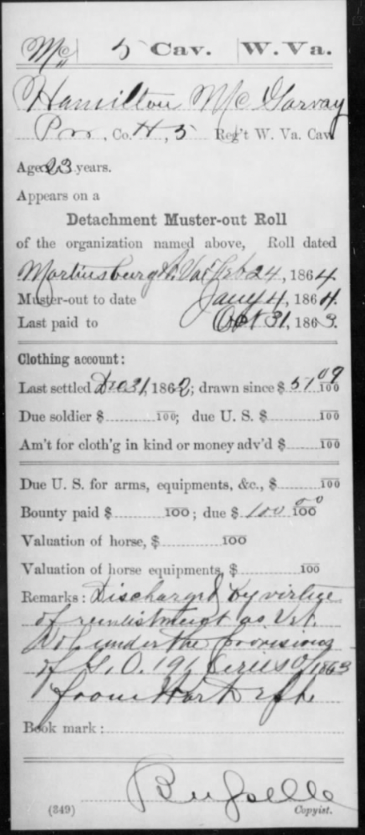 Mc 5 Cav. W. Va.
Hamilton McGarvay
Pvt, Co. H, 5 Reg't W. Va. Cav.
Age 23 years.
Appears on a
Detachment Muster-out Roll
of the organization named above, Roll dated
Martinsburg W. Va. Feb 24, 1864
Muster-out to date Jany 4, 1864
Last paid to Oct 31, 1863.
Clothing account:
Last settled Dec 31, 1862; drawn since $ 57 09/100
Due soldier $ 100; due U. S. $ 100
Am't for cloth'g in kind or money adv'd $ 100
Due U. S. for arms, equipments, &c., $ 100
Bounty paid $ 100; due $ 100 00/100
Valuation of horse, $ 100
Valuation of horse equipments, $ 100
Remarks: Discharged by virtue
of reenlistment as Vet
Vol. under the provisions
of G. O. 191 series of 1863
from War Dept
Book mark:
(349) Copyist.